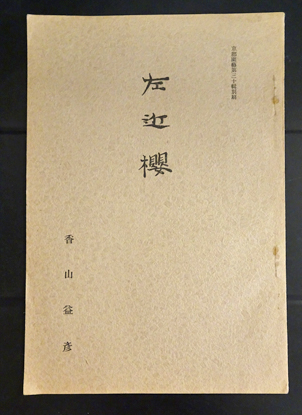 京都園藝第三十輯別刷
左近櫻
香山益彦